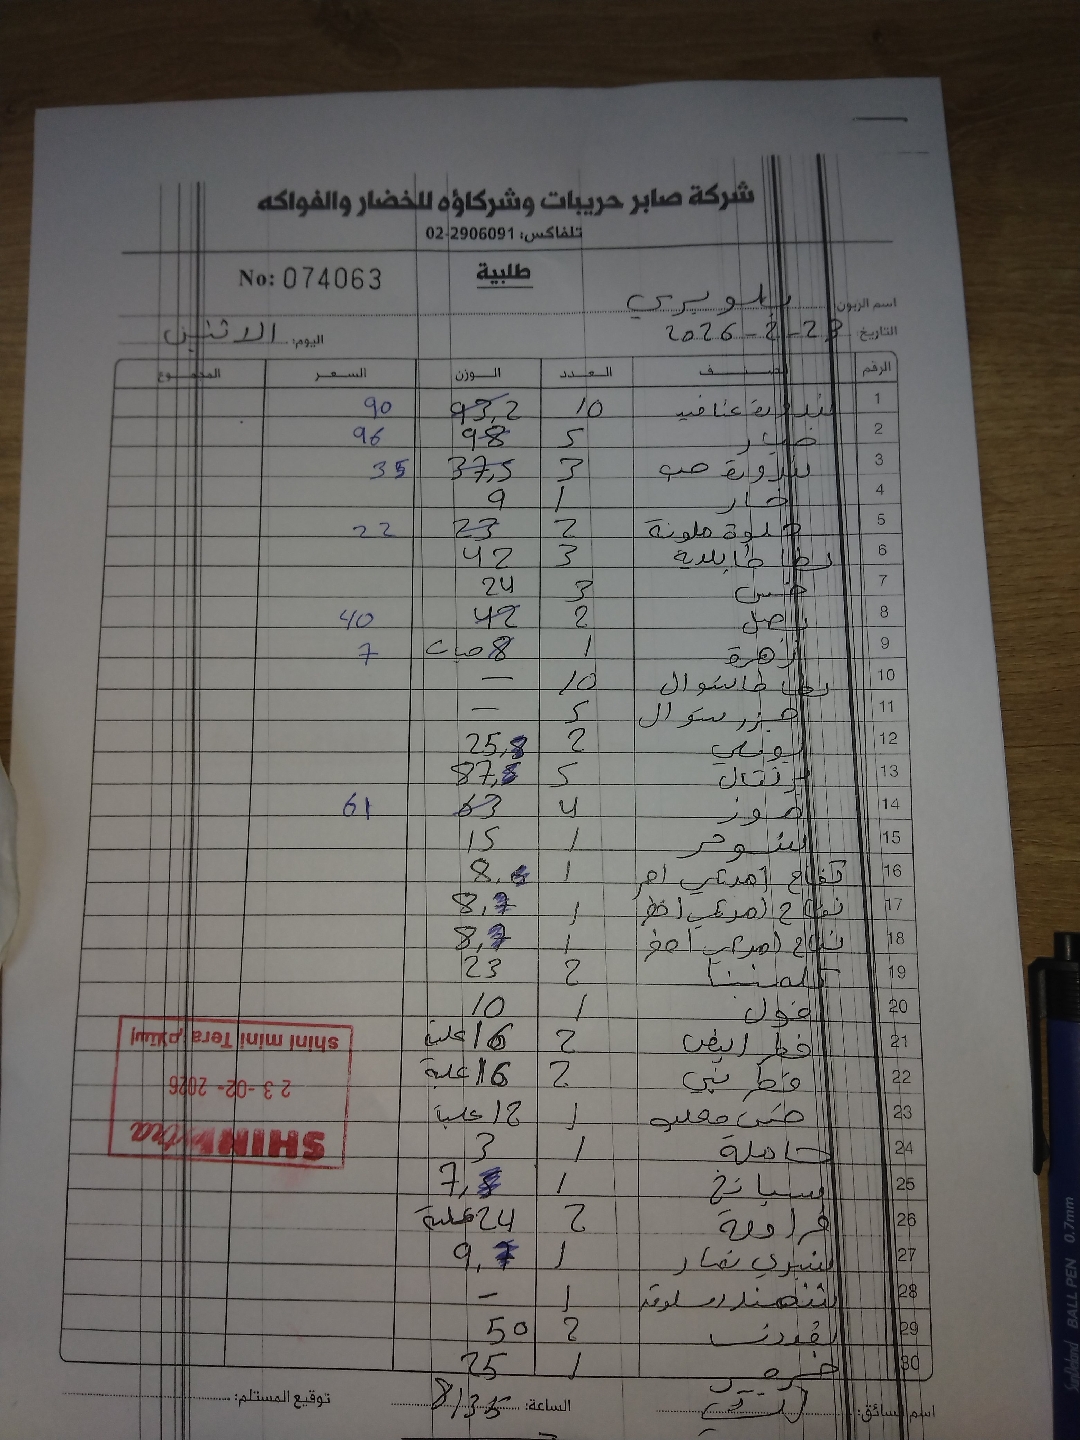 شركة صابر حريبات وشركاؤه للخضار والفواكه
تلفاكس: 02-2906091
طلبية
No: 074063
اسم الزبون:
التاريخ: 23-2-2026
اليوم: الاثنين
الرقم الصنف العدد الوزن السعر المجموع
1 بندورة عناقيد 10 93,2 90
2 خيار 5 98 96
3 بندورة حب 3 37,5 35
4 1 9
5 حلوة ملونة 2 23 22
6 بطاطا بلدية 3 42
7 خس 3 24
8 بصل 2 42 40
9 زهرة 1 8 حبات 7
10 بطاطا شوال 10 -
11 جزر شوال 5 -
12 بوملي 2 25,8
13 برتقال 5 87,8
14 موز 4 63 61
15 1 15
16 تفاح احمر 1 8,6
17 تفاح اخضر 1 8,7
18 تفاح اصفر 1 8,7
19 كلمنتينا 2 23
20 فول 1 10
21 فطر ابيض 2 16 علبة
22 فطر بني 2 16 علبة
23 خس 1 12 علبة
24 1 3
25 سبانخ 1 7,8
26 فراولة 2 24 علبة
27 شيري 1 9,7
28 شمندر مسلوق 1 -
29 بقدونس 2 50
30 1 25
اسم السائق:
الساعة: 8/35
توقيع المستلم:
SHINI extra
23-02-2026
shini mini Tera إستلام
BALL PEN 0.7mm